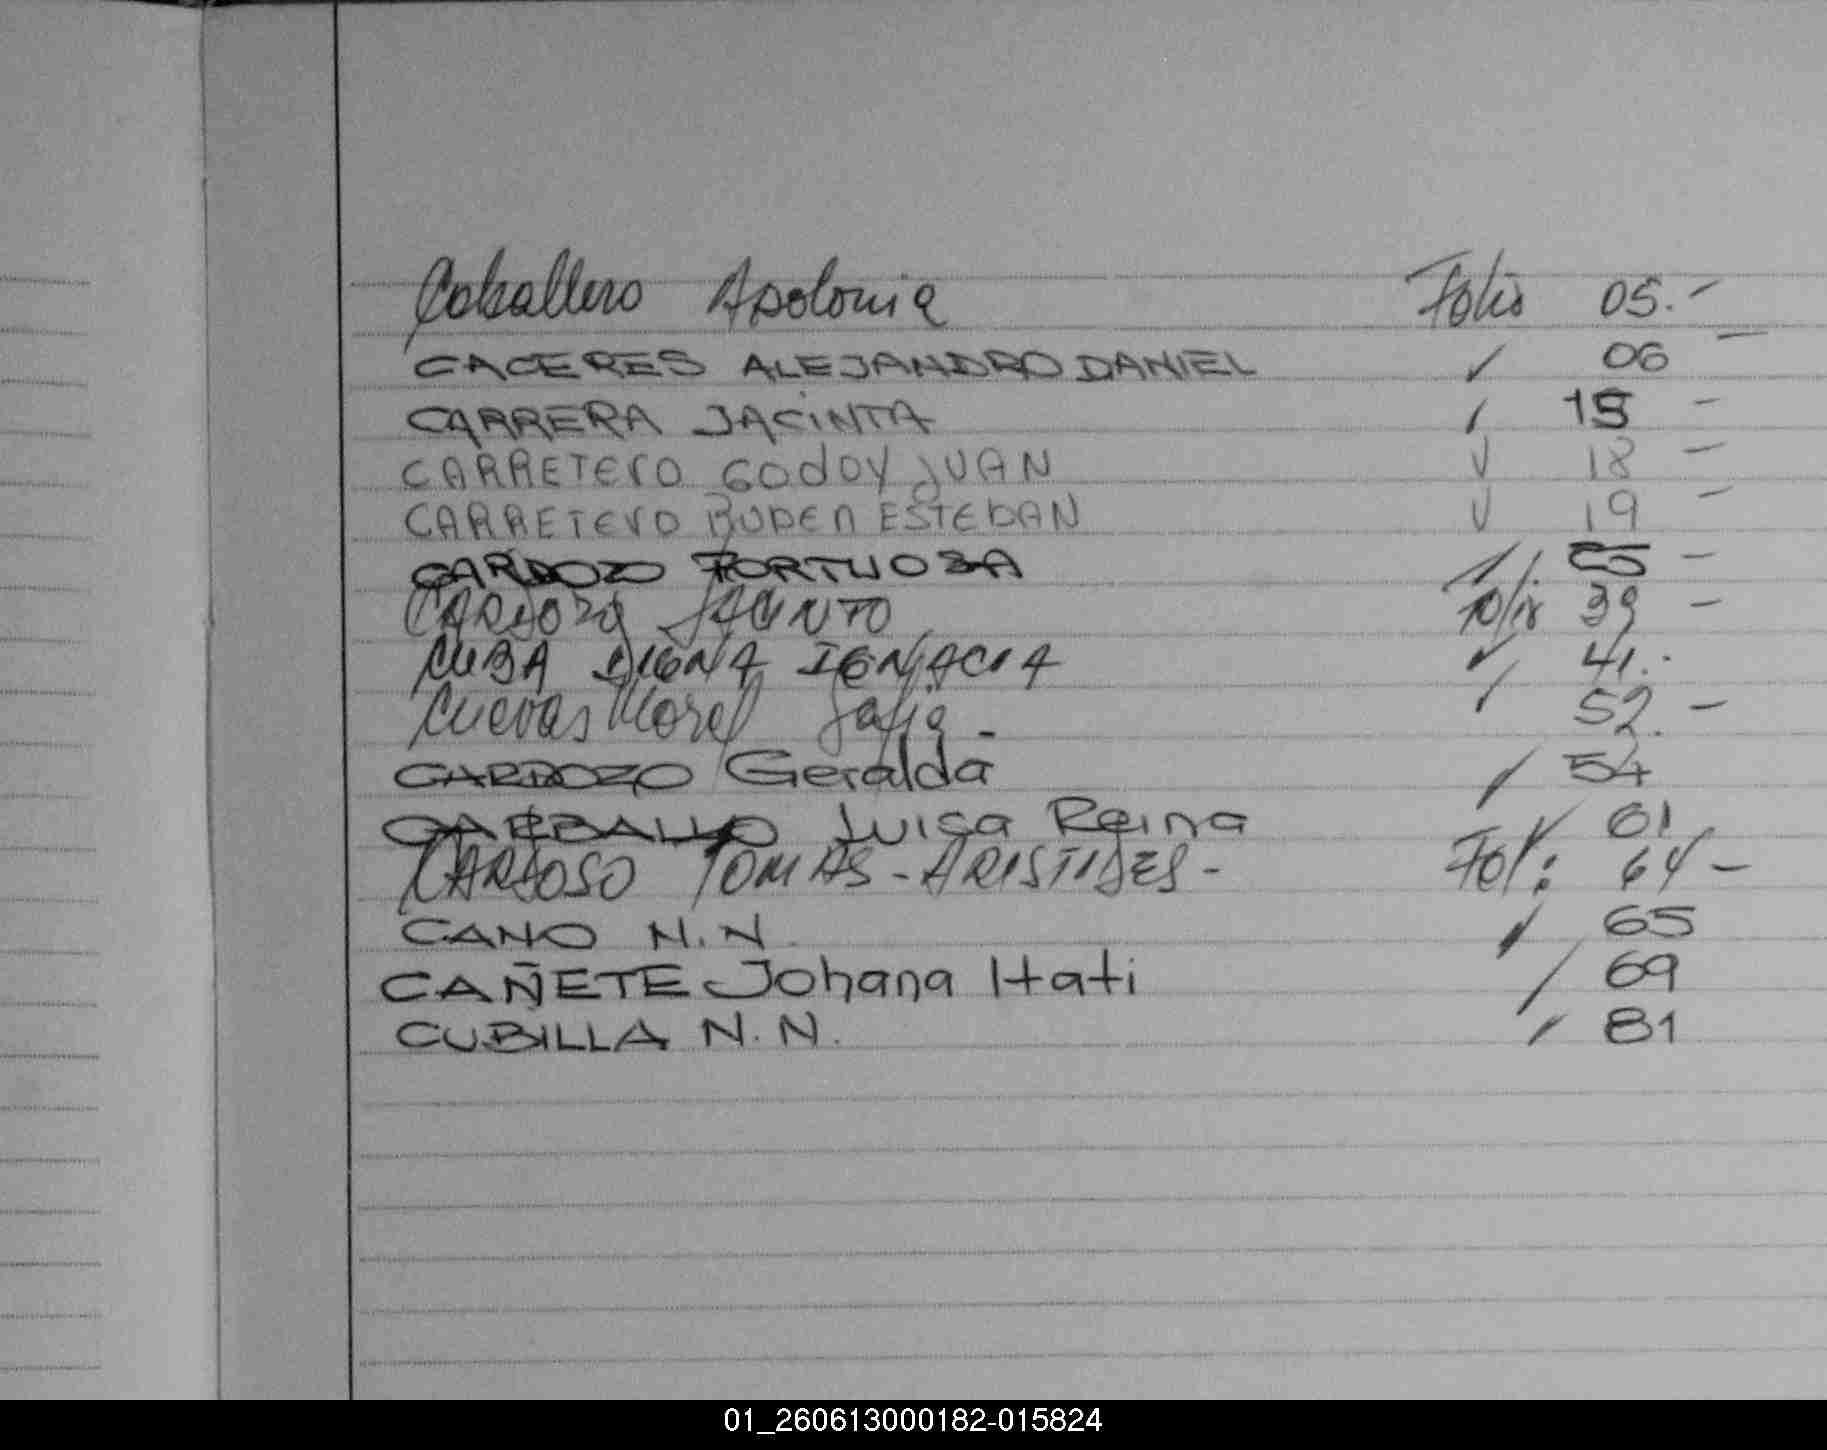 Caballero Apolonia Folio 05.-
CACERES ALEJANDRO DANIEL ✓ 06 -
CARRERA JACINTA ✓ 15 -
CARRETERO GODOY JUAN ✓ 18 -
CARRETERO RUBEN ESTEBAN ✓ 19 -
CARDOZO FORTUOSA 25 -
CARDOZO JACINTO Folio 39 -
CUBA DIGNA IGNACIA ✓ 41.-
Cuevas Morel Safia - 52.-
CARDOZO Geralda / 54
CARBALLO Luisa Reina 61
CARDOSO TOMAS - ARISTIDES - Fol: 64 -
CANO N.N. / 65
CAÑETE Johana Itati / 69
CUBILLA N.N. / 81
01_260613000182-015824